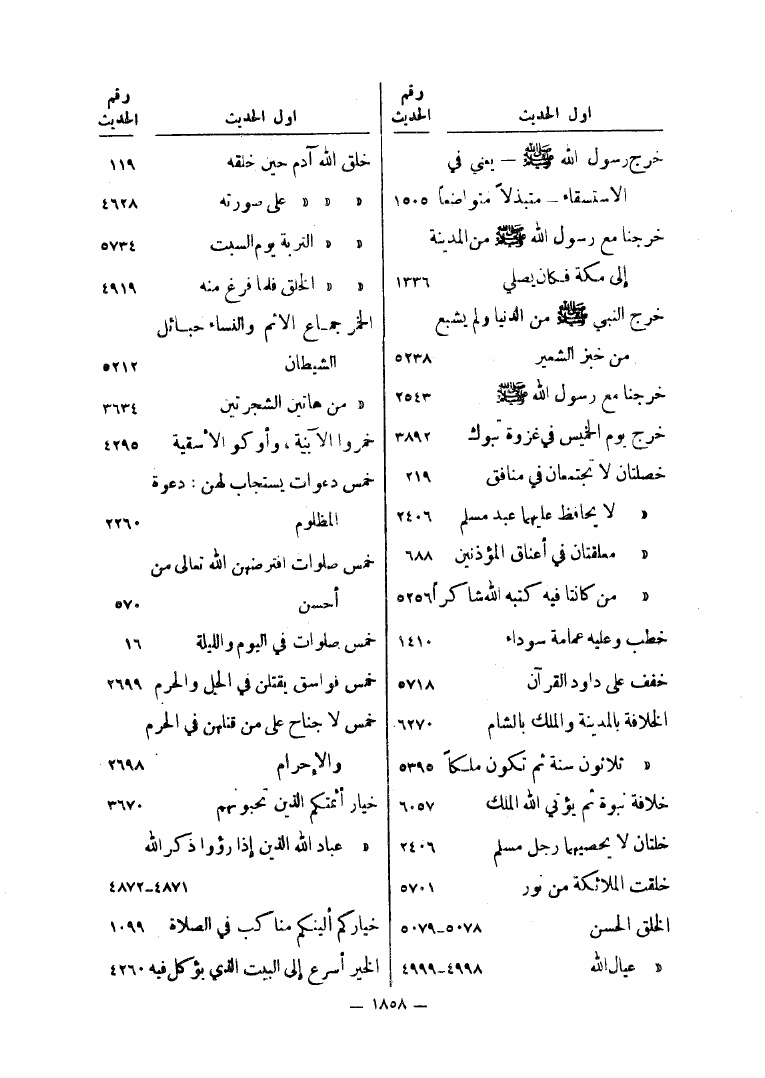 اول الحديث رقم الحديث
خرج رسول الله ﷺ — يعني في
الاستسقاء — متبذلاً متواضعاً ١٥٠٥
خرجنا مع رسول الله ﷺ من المدينة
إلى مكة فكان يصلي ١٣٣٦
خرج النبي ﷺ من الدنيا ولم يشبع
من خبز الشعير ٥٢٣٨
خرجنا مع رسول الله ﷺ ٢٥٤٣
خرج يوم الخميس في غزوة تبوك ٣٨٩٢
خصلتان لا تجتمعان في منافق ٢١٩
« لا يحافظ عليهما عبد مسلم ٢٤٠٦
« معلقتان في أعناق المؤذنين ٦٨٨
« من كانتا فيه كتبه الله شاكراً ٥٢٥٦
خطب وعليه عمامة سوداء ١٤١٠
خفف على داود القرآن ٥٧١٨
الخلافة بالمدينة والملك بالشام ٦٢٧٠
« ثلاثون سنة ثم تكون ملكاً ٥٣٩٥
خلافة نبوة ثم يؤتي الله الملك ٦٠٥٧
خلتان لا يحصيهما رجل مسلم ٢٤٠٦
خلقت الملائكة من نور ٥٧٠١
الخلق الحسن ٥٠٧٨–٥٠٧٩
« عيال الله ٤٩٩٨–٤٩٩٩
اول الحديث رقم الحديث
خلق الله آدم حين خلقه ١١٩
« « « على صورته ٤٦٢٨
« « التربة يوم السبت ٥٧٣٤
« « الخلق فلما فرغ منه ٤٩١٩
الخمر جماع الاثم والنساء حبائل
الشيطان ٥٢١٢
« من هاتين الشجرتين ٣٦٣٤
خمروا الآنية ، وأوكو الأسقية ٤٢٩٥
خمس دعوات يستجاب لهن : دعوة
المظلوم ٢٢٦٠
خمس صلوات افترضهن الله تعالى من
أحسن ٥٧٠
خمس صلوات في اليوم والليلة ١٦
خمس فواسق يقتلن في الحل والحرم ٢٦٩٩
خمس لا جناح على من قتلهن في الحرم
والإحرام ٢٦٩٨
خيار أئمتكم الذين تحبونهم ٣٦٧٠
« عباد الله الذين إذا رؤوا ذكر الله
٤٨٧١–٤٨٧٢
خياركم ألينكم مناكب في الصلاة ١٠٩٩
الخير أسرع إلى البيت الذي يؤكل فيه ٤٢٦٠
— ١٨٥٨ —